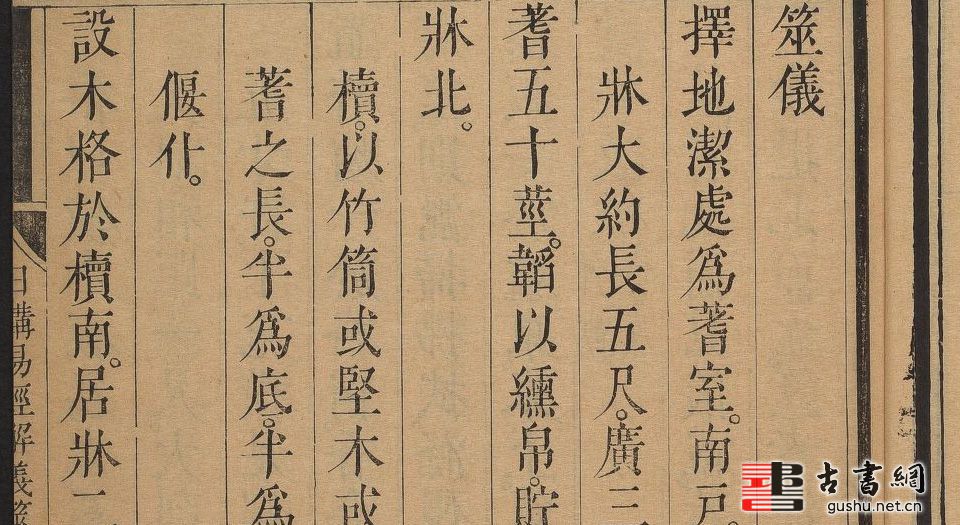 筮儀
擇地潔處爲蓍室。南戸。
牀大約長五尺。廣三
蓍五十莖。韜以纁帛。貯
牀北。
櫝。以竹筒或堅木或
蓍之長。半爲底。半爲
偃什。
設木格於櫝南。居牀二
日講易經解義筮
古書網
gushu.net.cn